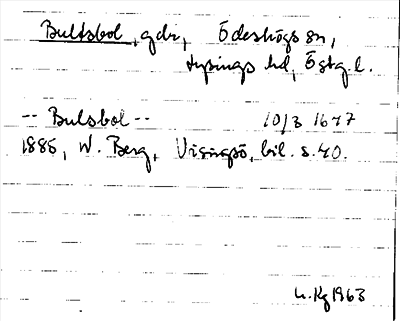 Bultsbol, gdr, Ödeshögs sn,
Lysings hd, Östg l.
-- Bulsbol -- 10/3 1677
1885, W. Berg, Visingsö, bil. s. 40.
1963